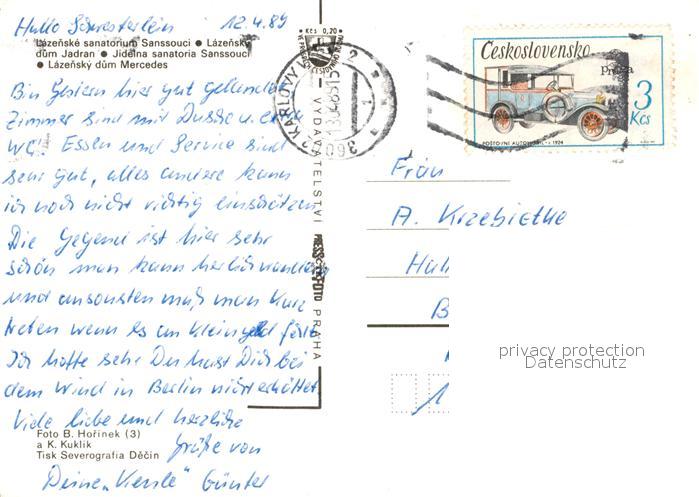 Hallo Schwesterlein 12.4.89
Lázeňské sanatorium Sanssouci • Lázeňský
dům Jadran • Jídelna sanatoria Sanssouci
• Lázeňský dům Mercedes
Bin Gestern hier gut gelandet
Zimmer sind mit Dusche u.
WC! Essen und Service sind
sehr gut, alles andere kann
ich noch nicht richtig einschätzen
Die Gegend ist hier sehr
schön man kann herlich wandern
und ansonsten muß man kurz
treten wenn es an Kleingeld fehlt
Ich hoffe sehr Du hast Dich bei
dem Wind in Berlin nicht erkältet
Viele liebe und herzliche
Grüße von
Deine Günter
Foto B. Hořínek (3)
a K. Kuklík
Tisk Severografia Děčín
Kčs 0,20
VYDAVATELSTVÍ PRESSFOTO PRAHA
KARLOVY
360
Československo
Praga
3
Kčs
POŠTOVNÍ AUTOMOBIL • 1924
Frau
A. Krzebietke
Hal
B
1
privacy protection
Datenschutz